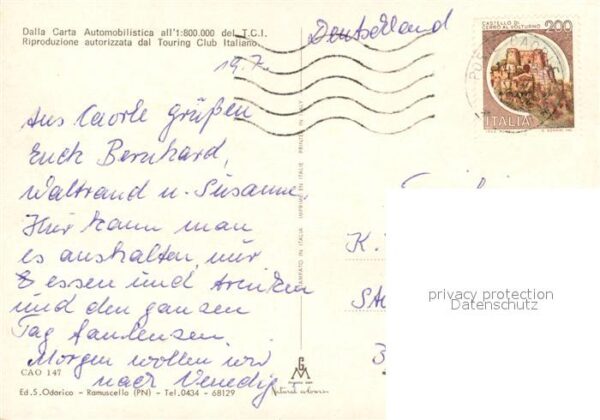 Dalla Carta Automobilistica all'1:800.000 del T.C.I.
Riproduzione autorizzata dal Touring Club Italiano
Deutschland
CASTELLO DI
CERRO AL VOLTURNO
200
ITALIA
19.7.
Aus Caorle grüßen
Euch Bernhard,
Waltraud u. Susanne.
Hier kann man
es aushalten, nur
essen und trinken
und den ganzen
Tag faulenzen.
Morgen wollen wir
nach Venedig
STAMPATO IN ITALIA IMPRIMÉ EN ITALIE PRINTED IN ITALY
K.
privacy protection
Datenschutz
CAO 147
Ed. S. Odorico - Ramuscello (PN) - Tel. 0434 - 68129
natural colour